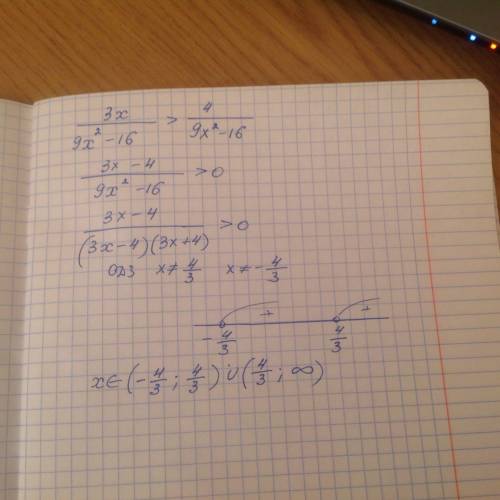 3x/(9x²-16) > 4/(9x²-16)
(3x-4)/(9x²-16) > 0
(3x-4)/((3x-4)(3x+4)) > 0
ОДЗ x≠4/3 x≠-4/3
+ +
-4/3 4/3
x∈(-4/3; 4/3)∪(4/3; ∞)